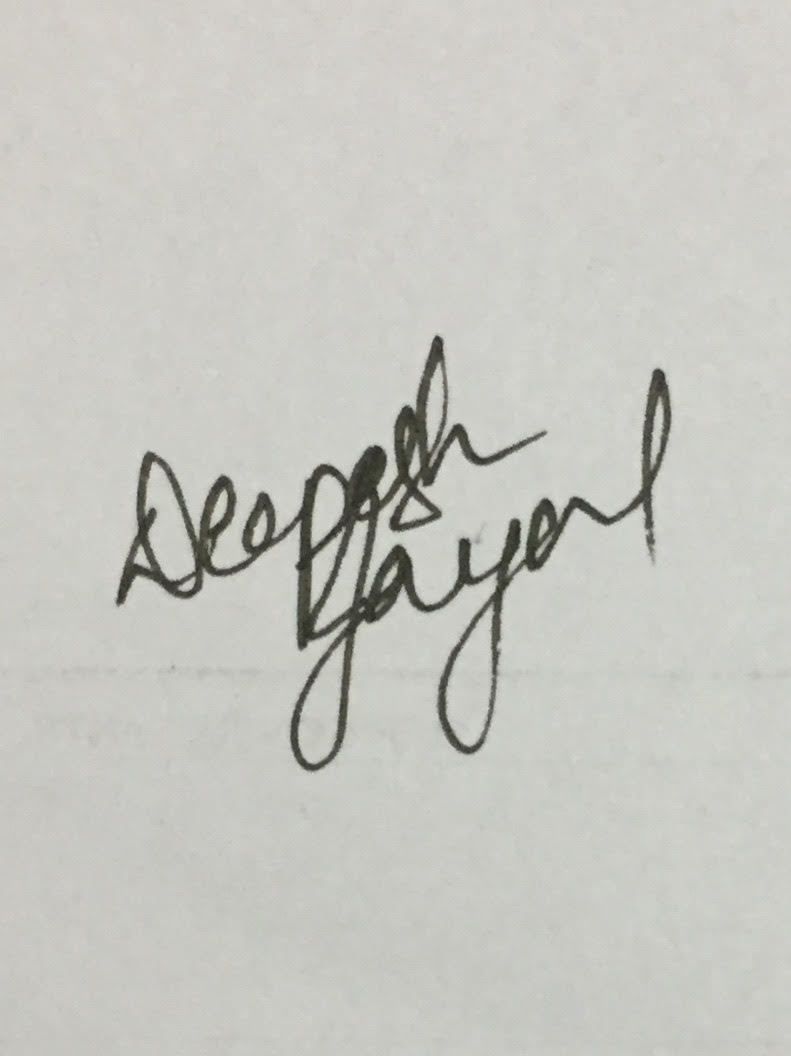 Deepesh
Jayal